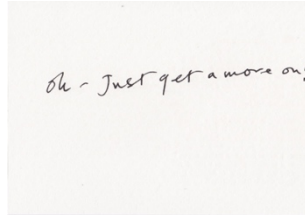 oh - Just get a more on